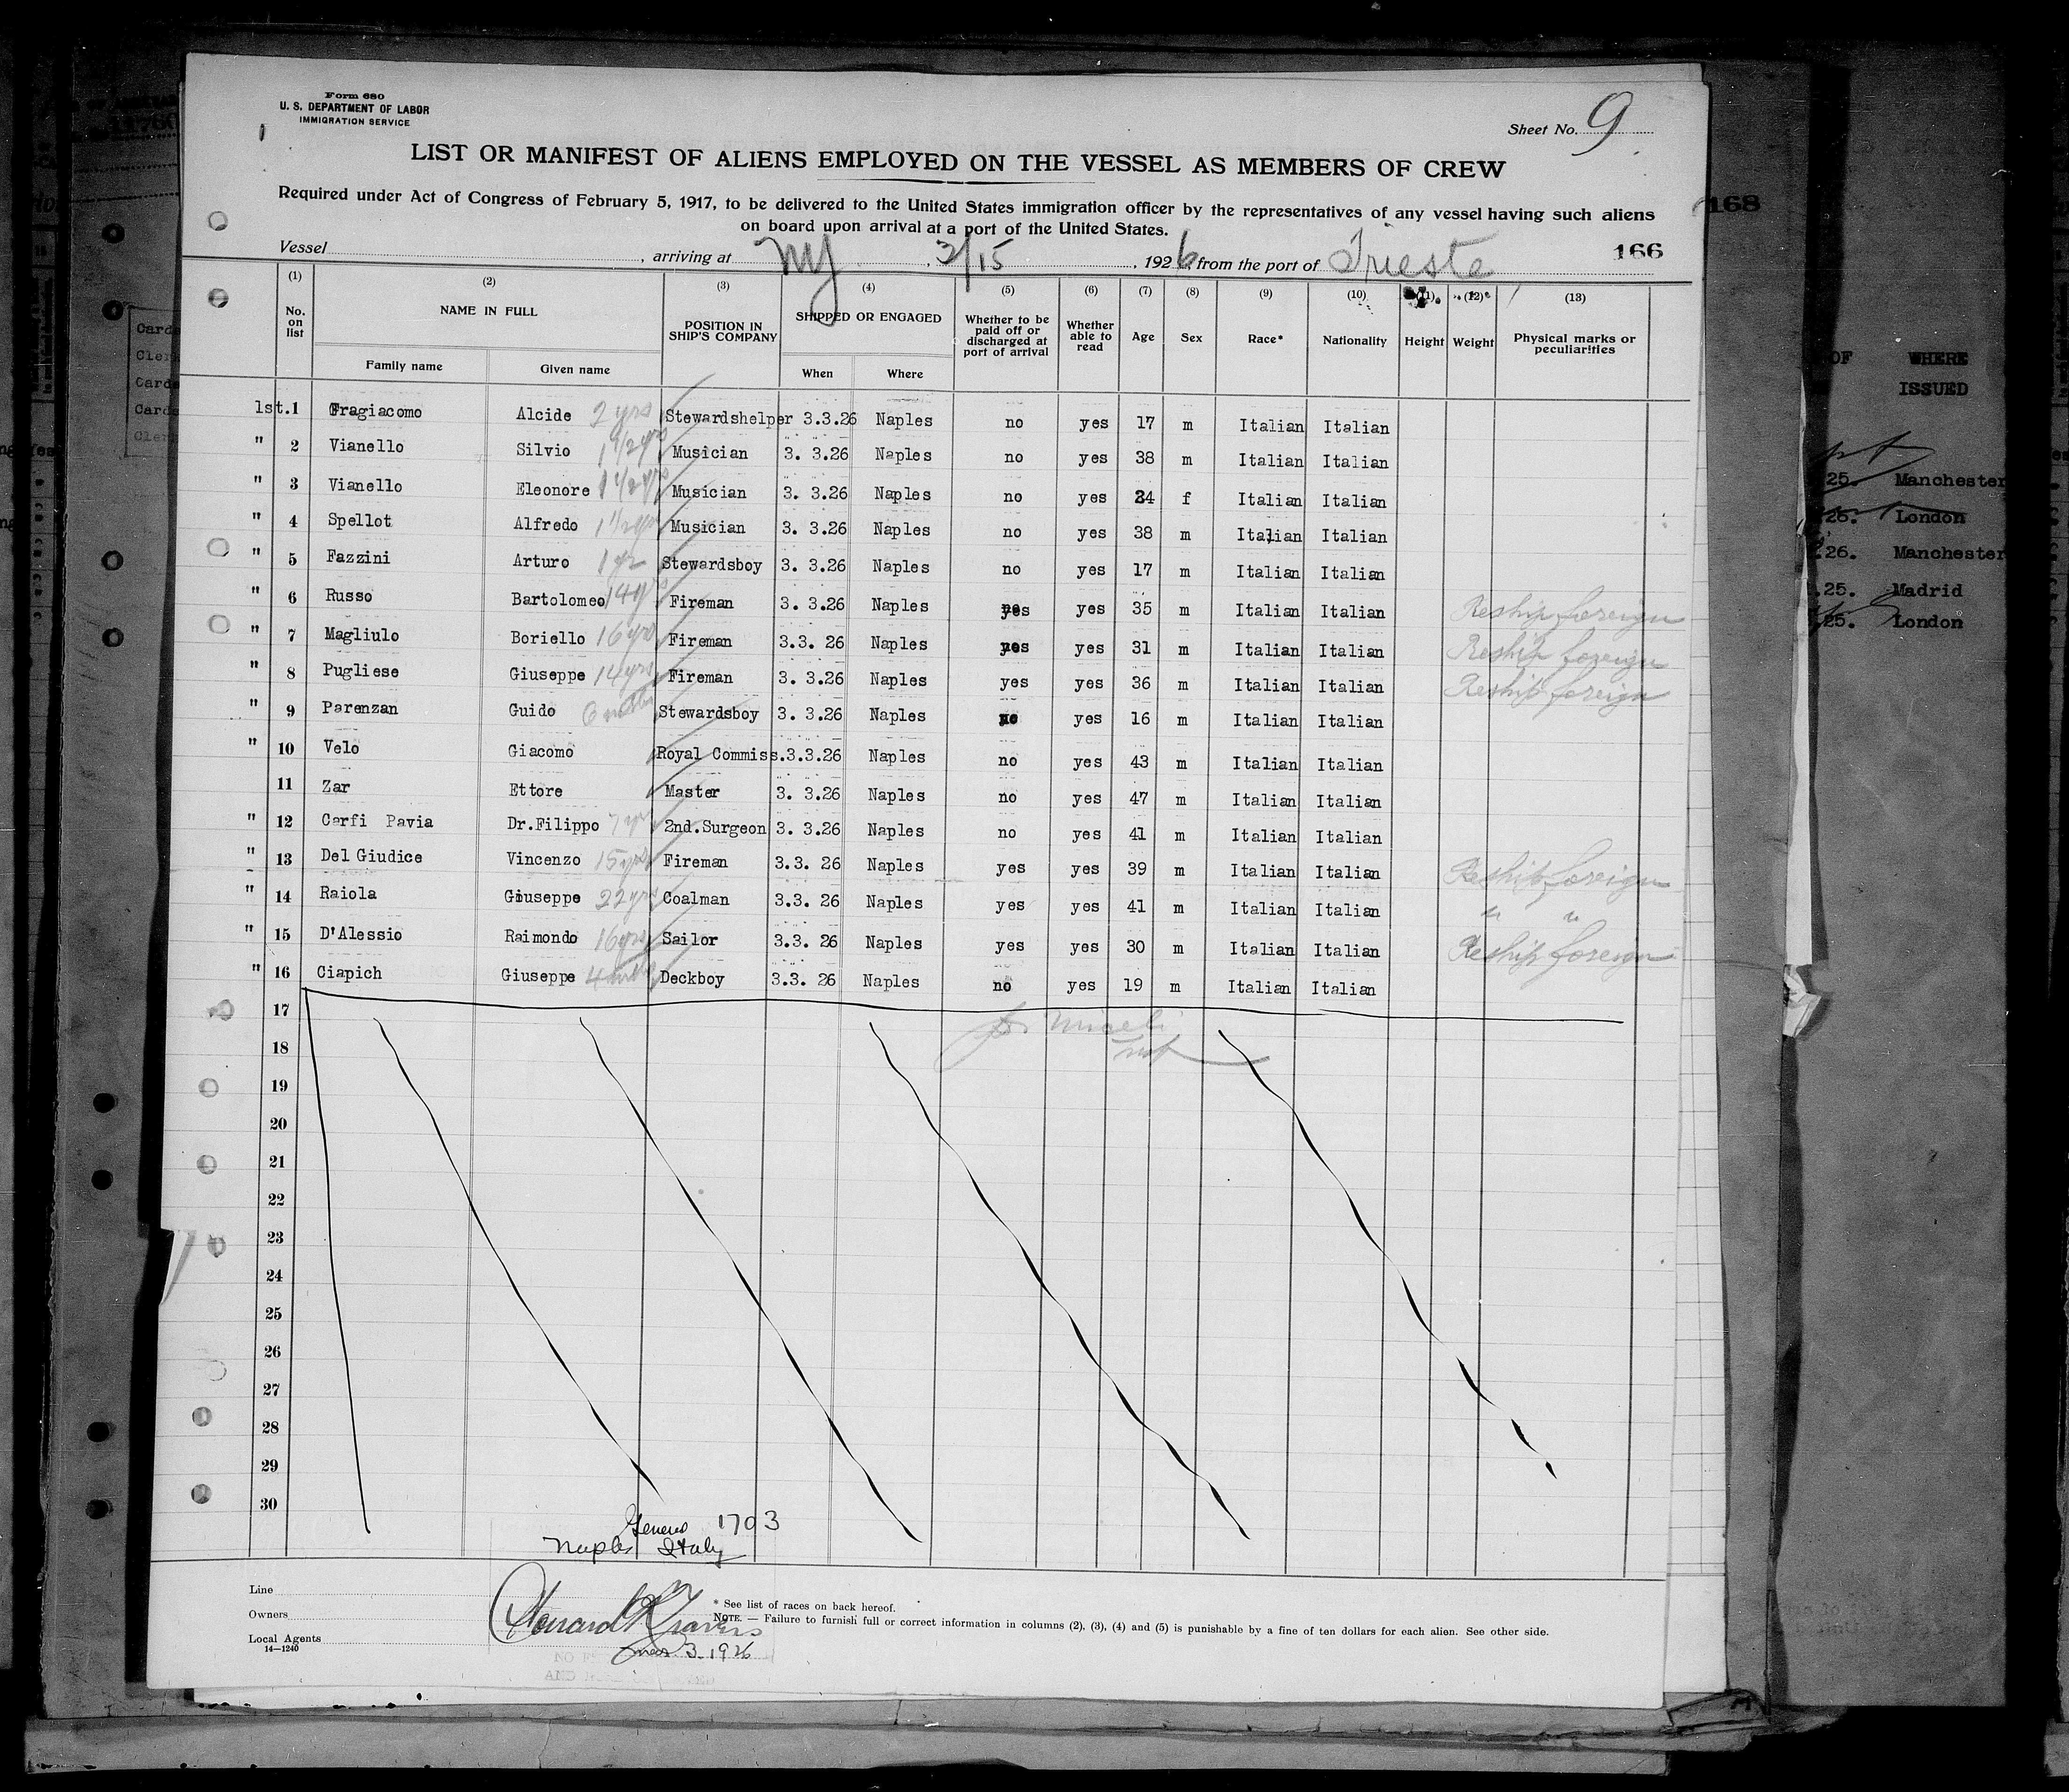 Form 680
U. S. DEPARTMENT OF LABOR
IMMIGRATION SERVICE
Sheet No. 9
LIST OR MANIFEST OF ALIENS EMPLOYED ON THE VESSEL AS MEMBERS OF CREW
Required under Act of Congress of February 5, 1917, to be delivered to the United States immigration officer by the representatives of any vessel having such aliens
on board upon arrival at a port of the United States.
168
166
Vessel , arriving at NY , 3/15 , 1926 from the port of Trieste
(1) (2) (3) (4) (5) (6) (7) (8) (9) (10) (11) (12) (13)
No. on list NAME IN FULL POSITION IN SHIP'S COMPANY SHIPPED OR ENGAGED Whether to be paid off or discharged at port of arrival Whether able to read Age Sex Race* Nationality Height Weight Physical marks or peculiarities
Family name Given name When Where
1st. 1 Fragiacomo Alcide 2 yrs Stewardshelper 3.3.26 Naples no yes 17 m Italian Italian
" 2 Vianello Silvio 1 1/2 yrs Musician 3. 3.26 Naples no yes 38 m Italian Italian
" 3 Vianello Eleonore 1 1/2 yrs Musician 3. 3.26 Naples no yes 34 f Italian Italian
" 4 Spellot Alfredo 1 1/2 yr Musician 3. 3.26 Naples no yes 38 m Italian Italian
" 5 Fazzini Arturo 1 yr Stewardsboy 3. 3.26 Naples no yes 17 m Italian Italian
" 6 Russo Bartolomeo 14 yrs Fireman 3. 3.26 Naples yes yes 35 m Italian Italian Reship foreign
" 7 Magliulo Boriello 16 yrs Fireman 3.3. 26 Naples yes yes 31 m Italian Italian Reship foreign
" 8 Pugliese Giuseppe 14 yrs Fireman 3. 3.26 Naples yes yes 36 m Italian Italian Reship foreign
" 9 Parenzan Guido 6 mths Stewardsboy 3. 3.26 Naples no yes 16 m Italian Italian
" 10 Velo Giacomo Royal Commiss. 3.3.26 Naples no yes 43 m Italian Italian
11 Zar Ettore Master 3. 3.26 Naples no yes 47 m Italian Italian
" 12 Carfi Pavia Dr.Filippo 7 yrs 2nd.Surgeon 3. 3.26 Naples no yes 41 m Italian Italian
" 13 Del Giudice Vincenzo 15 yrs Fireman 3.3. 26 Naples yes yes 39 m Italian Italian Reship foreign
" 14 Raiola Giuseppe 22 yrs Coalman 3.3. 26 Naples yes yes 41 m Italian Italian " "
" 15 D'Alessio Raimondo 16 yrs Sailor 3.3. 26 Naples yes yes 30 m Italian Italian Reship foreign
" 16 Ciapich Giuseppe 4 mths Deckboy 3.3. 26 Naples no yes 19 m Italian Italian
17
18
19
20
21
22
23
24
25
26
27
28
29
30
1703
Naples Italy
Line
Owners
Local Agents
14—1240
Mar 3. 1926
* See list of races on back hereof.
NOTE. — Failure to furnish full or correct information in columns (2), (3), (4) and (5) is punishable by a fine of ten dollars for each alien. See other side.
OF WHERE
ISSUED
25. Manchester
26. London
26. Manchester
25. Madrid
25. London